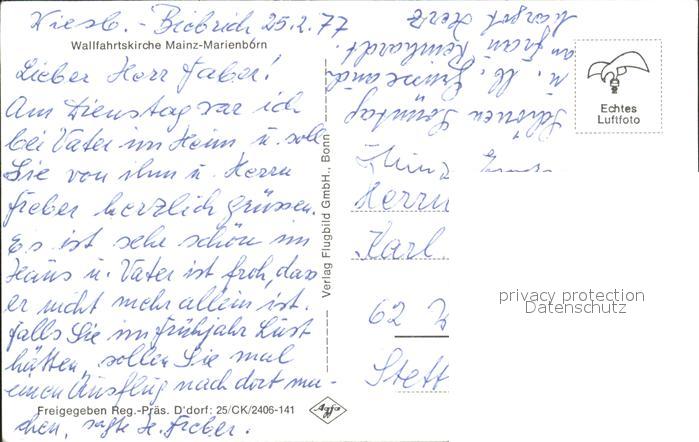 Wiesb.-Biebrich 25.2.77
Wallfahrtskirche Mainz-Marienborn
Lieber Herr Faber!
Am Dienstag war ich
bei Vater im Heim u. soll
Sie von ihm u. Herrn
Fieber herzlich grüssen.
Es ist sehr schön im
Haus u. Vater ist froh, dass
er nicht mehr allein ist.
Falls Sie im Frühjahr Lust
hätten, sollen Sie mal
einen Ausflug nach dort ma-
chen, sagte H. Fieber.
Freigegeben Reg.-Präs. D'dorf: 25/CK/2406-141
Agfa
Verlag Flugbild GmbH., Bonn
Schönen Sonntag
u. lb. Grüsse auch
an Frau Reinhardt.
Margot Herz
Echtes
Luftfoto
Herrn
Karl
62
Stett
privacy protection
Datenschutz